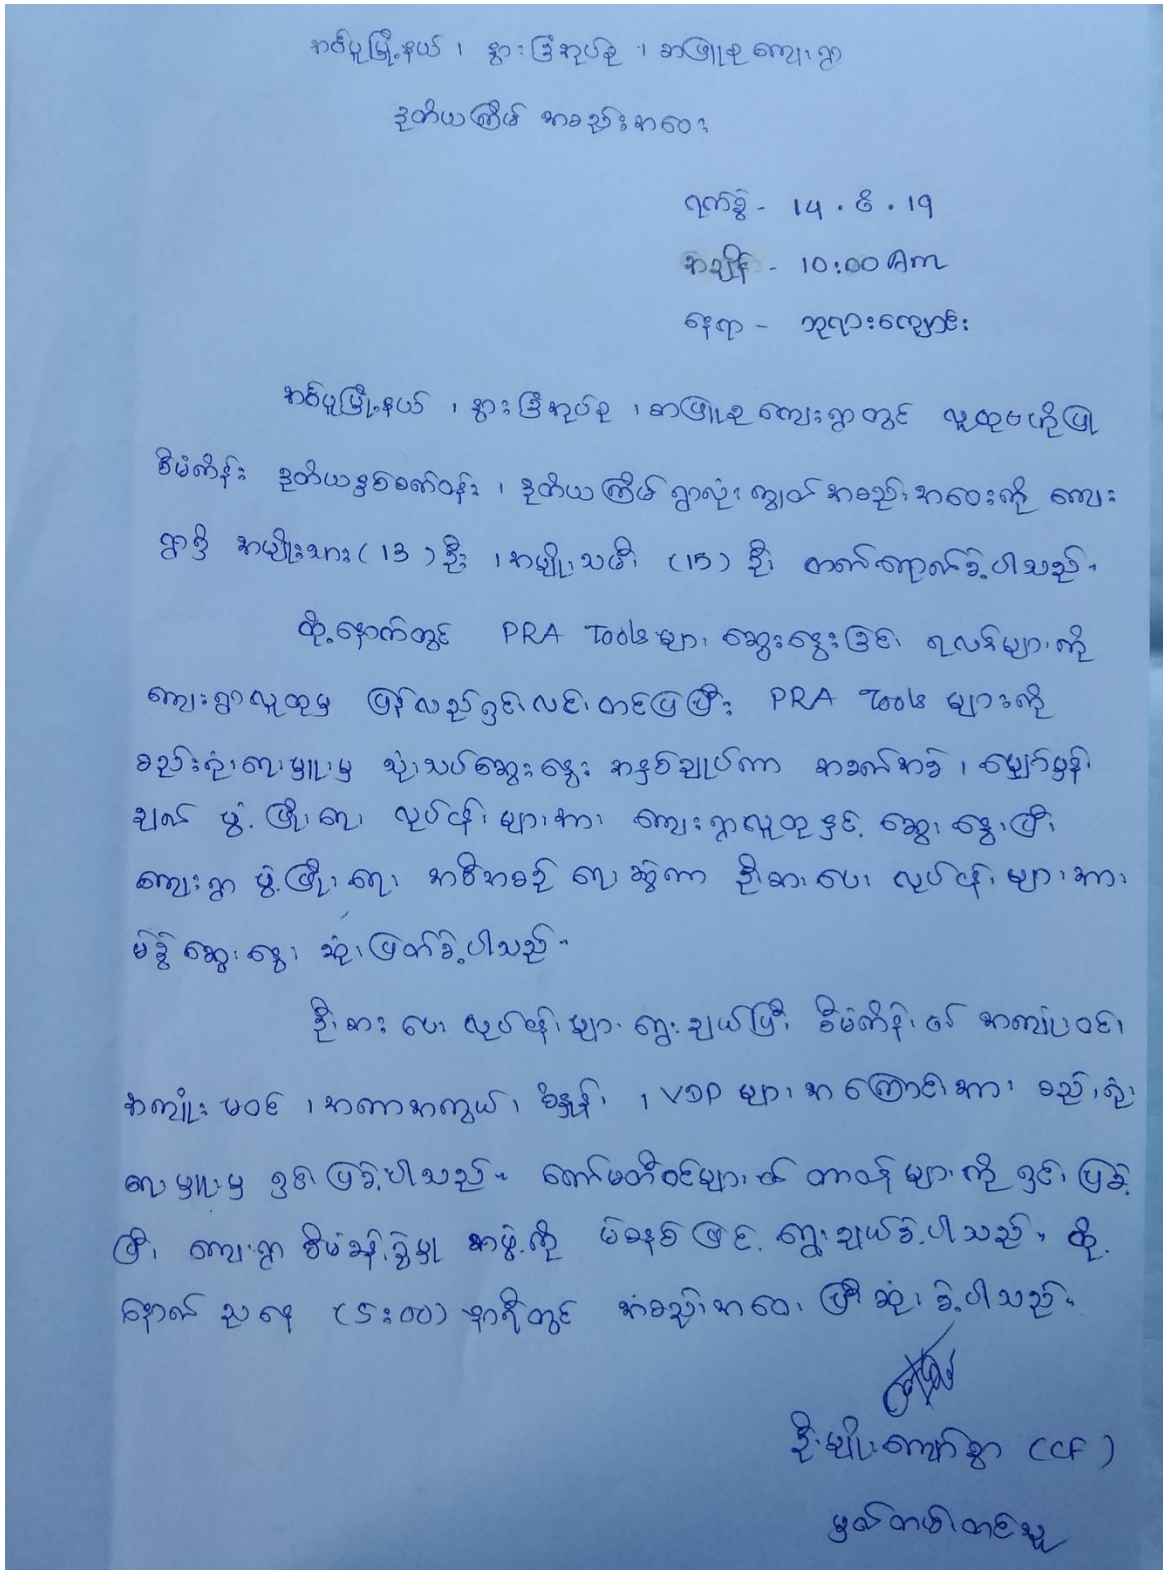 အမ်းမြို့နယ်၊ နွားခြံအုပ်စု၊ အဖြူစုကျေးရွာ
ဒုတိယကြိမ် အစည်းအဝေး
ရက်စွဲ - 14 . 6 . 19
အချိန် - 10:00 Am
နေရာ - ဘုရားကျောင်း
မြို့နယ်၊ နွားခြံအုပ်စု၊ ကျေးရွာတွင် လူထုဗဟိုပြု
စီမံကိန်း ဒုတိယနှစ်စက်ဝန်း၊ ဒုတိယကြိမ် ရွာလုံးကျွတ် အစည်းအဝေးကို ကျေး
ရွာရှိ အမျိုးသား (13) ဦး၊ အမျိုးသမီး (15) ဦး တက်ရောက်ခဲ့ပါသည်။
ထို့နောက်တွင် PRA Tools များ ဆွေးနွေးခြင်း ရလဒ်များကို
ကျေးရွာလူထုမှ ပြန်လည်ရှင်းလင်းတင်ပြပြီး PRA Tools များကို
စည်းရုံးရေးမှူးမှ သုံးသပ်ဆွေးနွေး အနှစ်ချုပ်ကာ အခက်အခဲ၊ မျှော်မှန်း
ချက် ဖွံ့ဖြိုးရေး လုပ်ငန်းများအား ကျေးရွာလူထုနှင့် ဆွေးနွေးပြီး
ကျေးရွာ ဖွံ့ဖြိုးရေး အစီအစဉ် ရေးဆွဲကာ ဦးစားပေး လုပ်ငန်းများအား
မဲခွဲဆွေးနွေး ဆုံးဖြတ်ခဲ့ပါသည်။
ဦးစားပေး လုပ်ငန်းများ ရွေးချယ်ပြီး စီမံကိန်း၏ အကျုံးဝင်၊
အကျုံးမဝင်၊ အကာအကွယ်၊ စံနှုန်း၊ VDP များအကြောင်းအား စည်းရုံး
ရေးမှူးမှ ရှင်းပြခဲ့ပါသည်။ ကော်မတီဝင်များ၏ တာဝန်များကို ရှင်းပြခဲ့
ပြီး ကျေးရွာ စီမံခန့်ခွဲမှု အဖွဲ့ကို မဲစနစ်ဖြင့် ရွေးချယ်ခဲ့ပါသည်။ ထို့
နောက် ညနေ (5:00) နာရီတွင် အစည်းအဝေး ပြီးဆုံးခဲ့ပါသည်။
ဦးမျိုးကျော်စွာ (CF)
မှတ်တမ်းတင်သူ